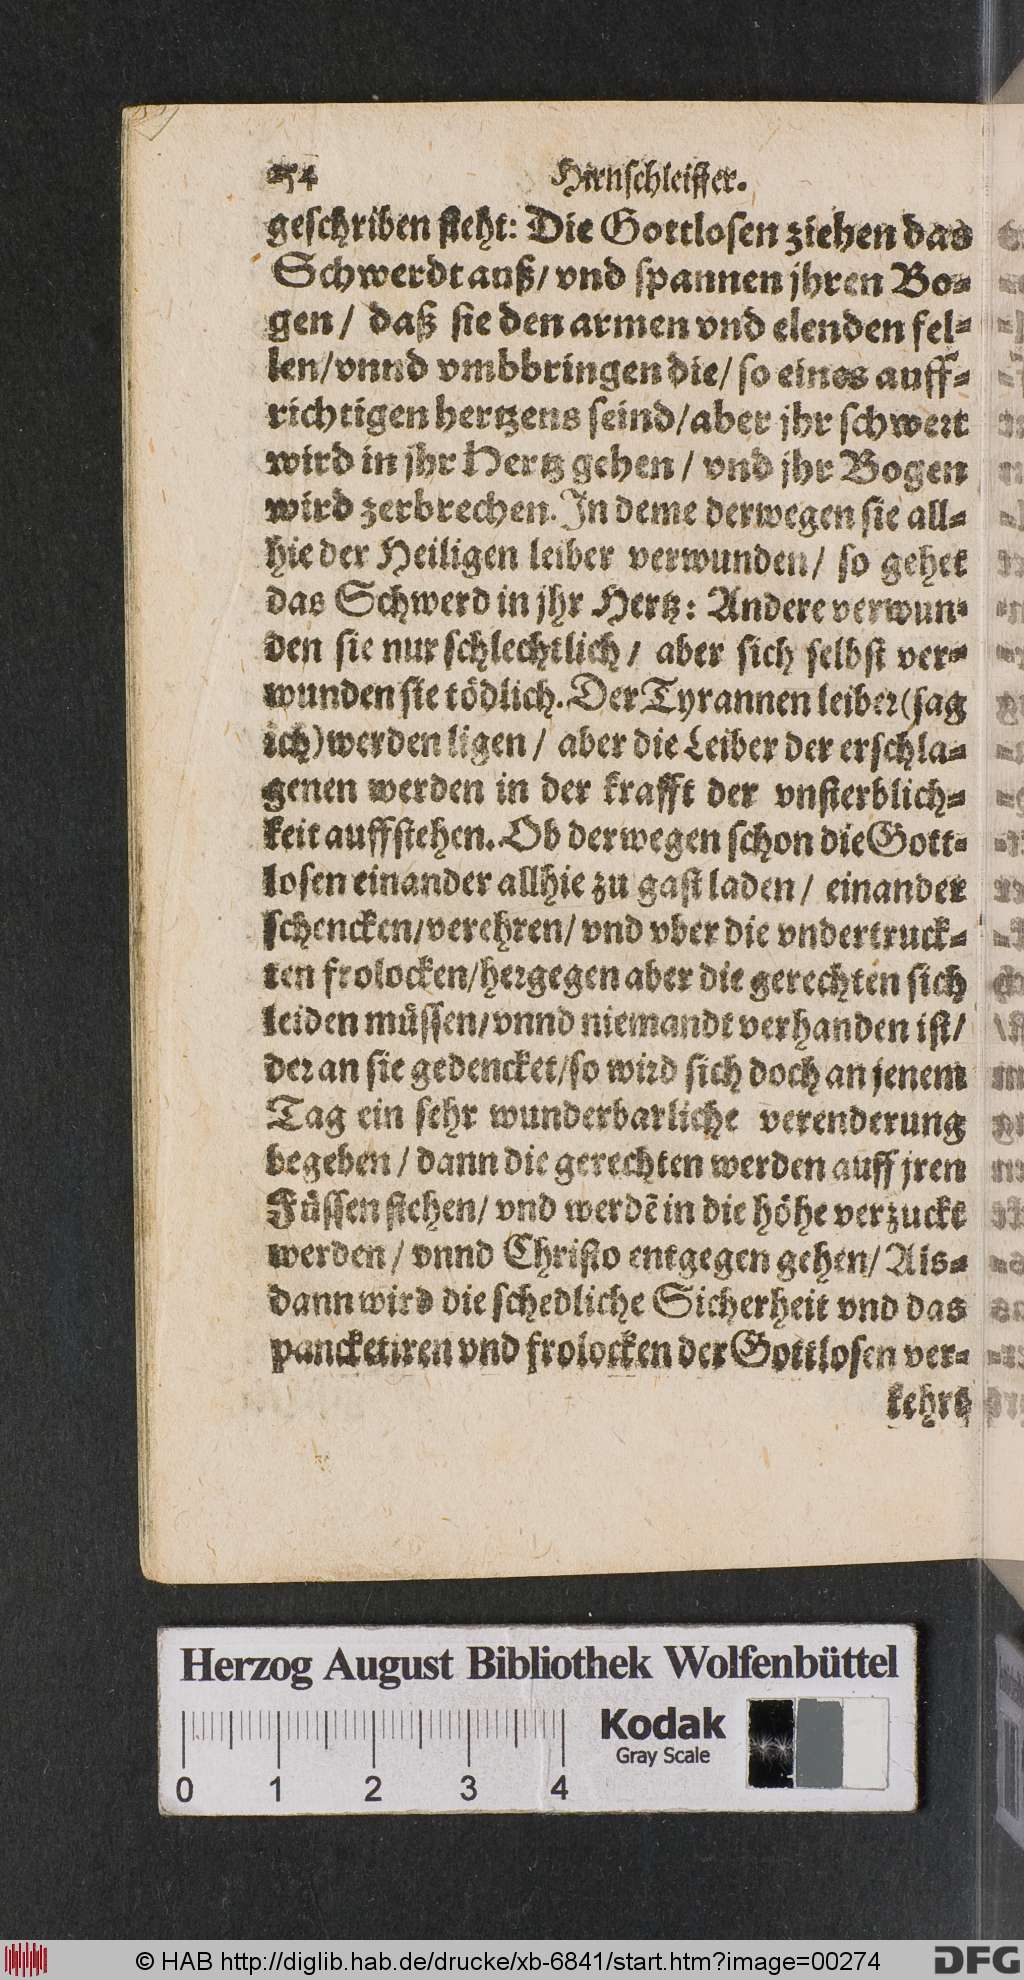 254 Hirnschleiffer.
geschriben steht: Die Gottlosen ziehen das
Schwerdt auß/ vnd spannen jhren Bo-
gen / daß sie den armen vnd elenden fel-
len/ vnnd vmbbringen die/ so eines auff-
richtigen hertzens seind/ aber jhr schwert
wird in jhr Hertz gehen / vnd jhr Bogen
wird zerbrechen. In deme derwegen sie all-
hie der Heiligen leiber verwunden/ so gehet
das Schwerd in jhr Hertz: Andere verwun-
den sie nur schlechtlich / aber sich selbst ver-
wunden sie tödlich. Der Tyrannen leiber (sag
ich) werden ligen / aber die Leiber der erschla-
genen werden in der krafft der vnsterblich-
keit auffstehen. Ob derwegen schon die Gott-
losen einander allhie zu gast laden / einander
schencken/ verehren/ vnd vber die vndertruck-
ten frolocken/ hergegen aber die gerechten sich
leiden müssen/ vnnd niemandt verhanden ist/
der an sie gedencket/ so wird sich doch an jenem
Tag ein sehr wunderbarliche verenderung
begeben / dann die gerechten werden auff jren
Füssen stehen/ vnd werdẽ in die höhe verzuckt
werden / vnnd Christo entgegen gehen/ Als-
dann wird die schedliche Sicherheit vnd das
pancketiren vnd frolocken der Gottlosen ver-
kehrt
Herzog August Bibliothek Wolfenbüttel
Kodak
Gray Scale
0 1 2 3 4
© HAB http://diglib.hab.de/drucke/xb-6841/start.htm?image=00274
DFG